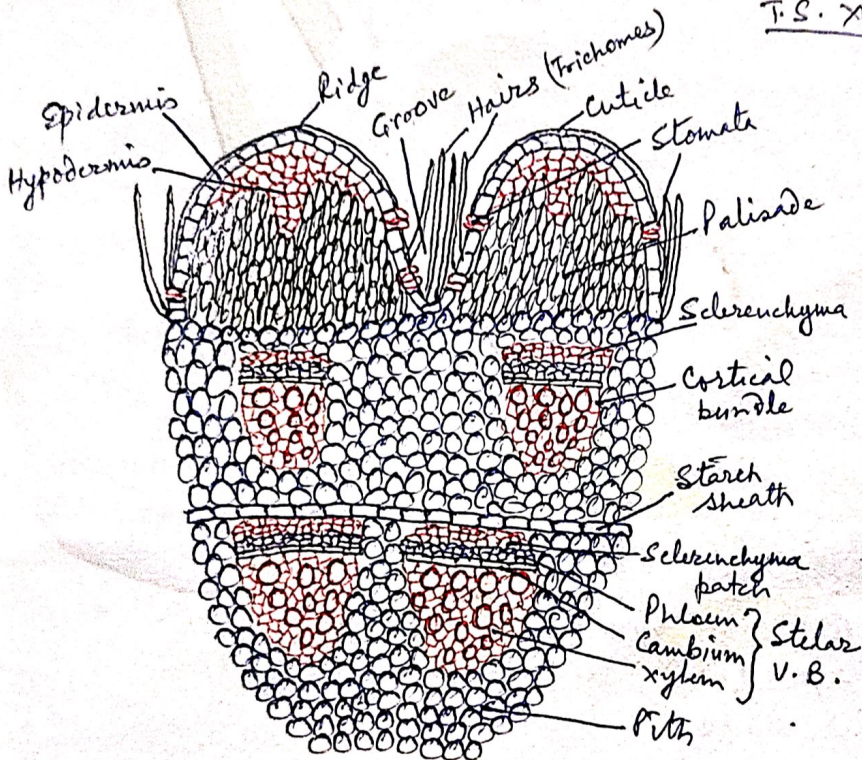 T.S. X
Epidermis
Hypodermis
Ridge
Groove
Hairs (Trichomes)
Cuticle
Stomata
Palisade
Sclerenchyma
Cortical
bundle
Starch
sheath
Sclerenchyma
patch
Phloem
Cambium
xylem
Stelar
V.B.
Pith